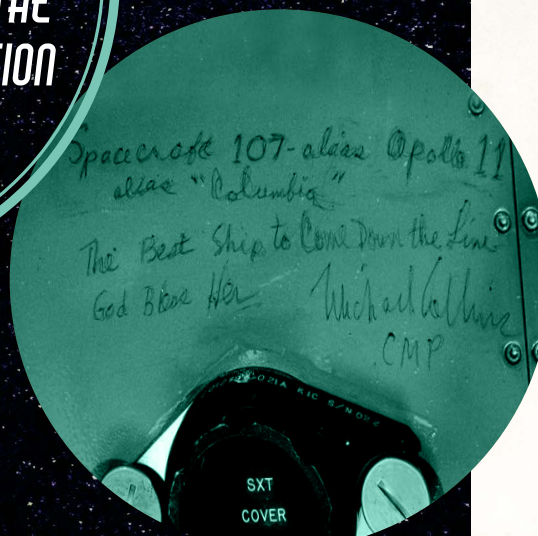 THE
ION
Spacecraft 107-alias Apollo 11
alias "Columbia"
The Best Ship to Come Down the Line
God Bless Her Michael Collins
CMP
021A KIC S/N
SXT
COVER